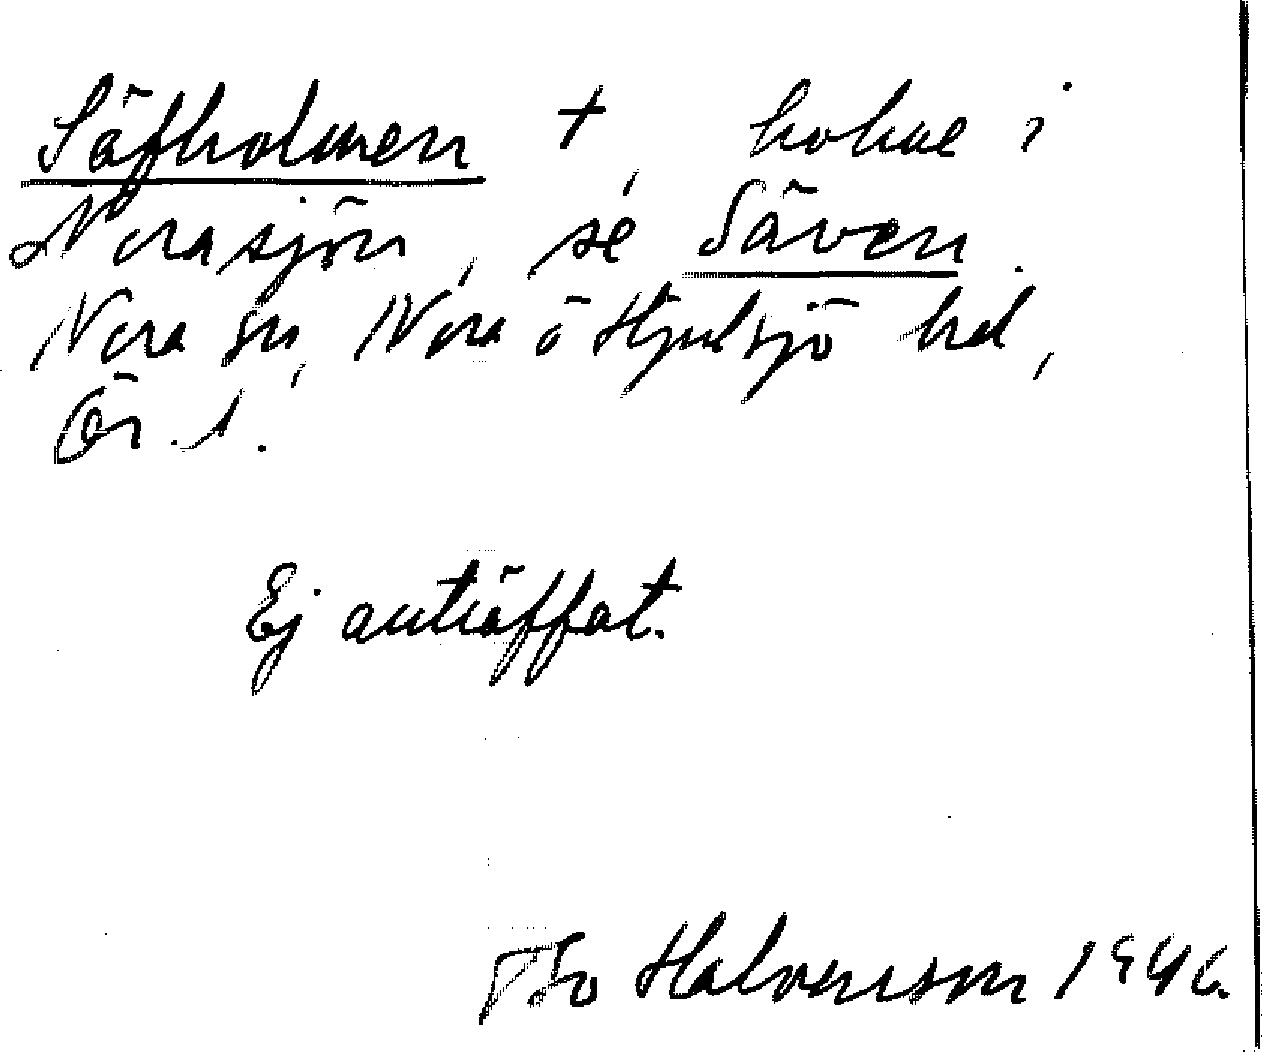 Säfholmen †, holme i
Norasjön, se Säven.
Nora sn, Nora o Hjulsjö hd,
Ör. l.
Ej anträffat.
Bo Halvarsson 1946.